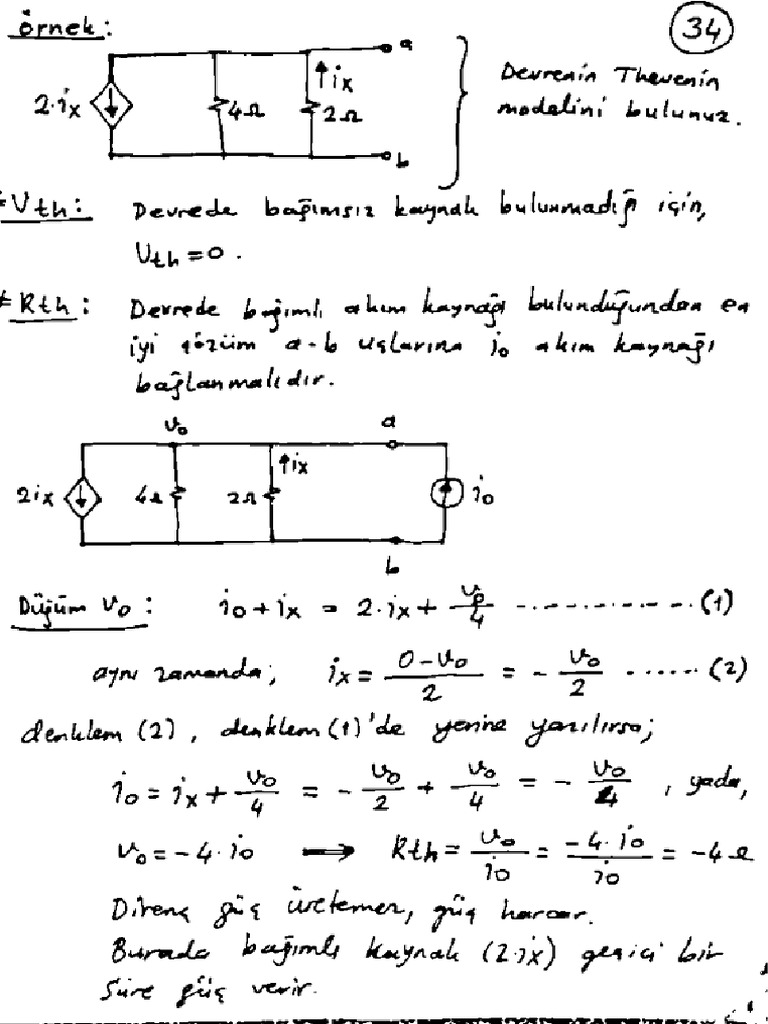 örnek:
34
a
2·ix
4Ω
ix
2Ω
b
Devrenin Thevenin
modelini bulunuz.
≠Vth: Devrede bağımsız kaynak bulunmadığı için,
Vth=0.
≠Rth: Devrede bağımlı akım kaynağı bulunduğundan en
iyi çözüm a-b uçlarına io akım kaynağı
bağlanmalıdır.
vo
a
2ix
4Ω
2Ω
ix
io
b
Düğüm vo: io+ix = 2·ix + vo/4 ............... (1)
aynı zamanda; ix = (0-vo)/2 = - vo/2 ...... (2)
denklem (2), denklem (1)'de yerine yazılırsa;
io = ix + vo/4 = - vo/2 + vo/4 = - vo/4 , yada,
vo = -4·io ⟹ Rth = vo/io = -4·io/io = -4Ω
Direnç güç üretemez, güç harcar.
Burada bağımlı kaynak (2·ix) geçici bir
süre güç verir.